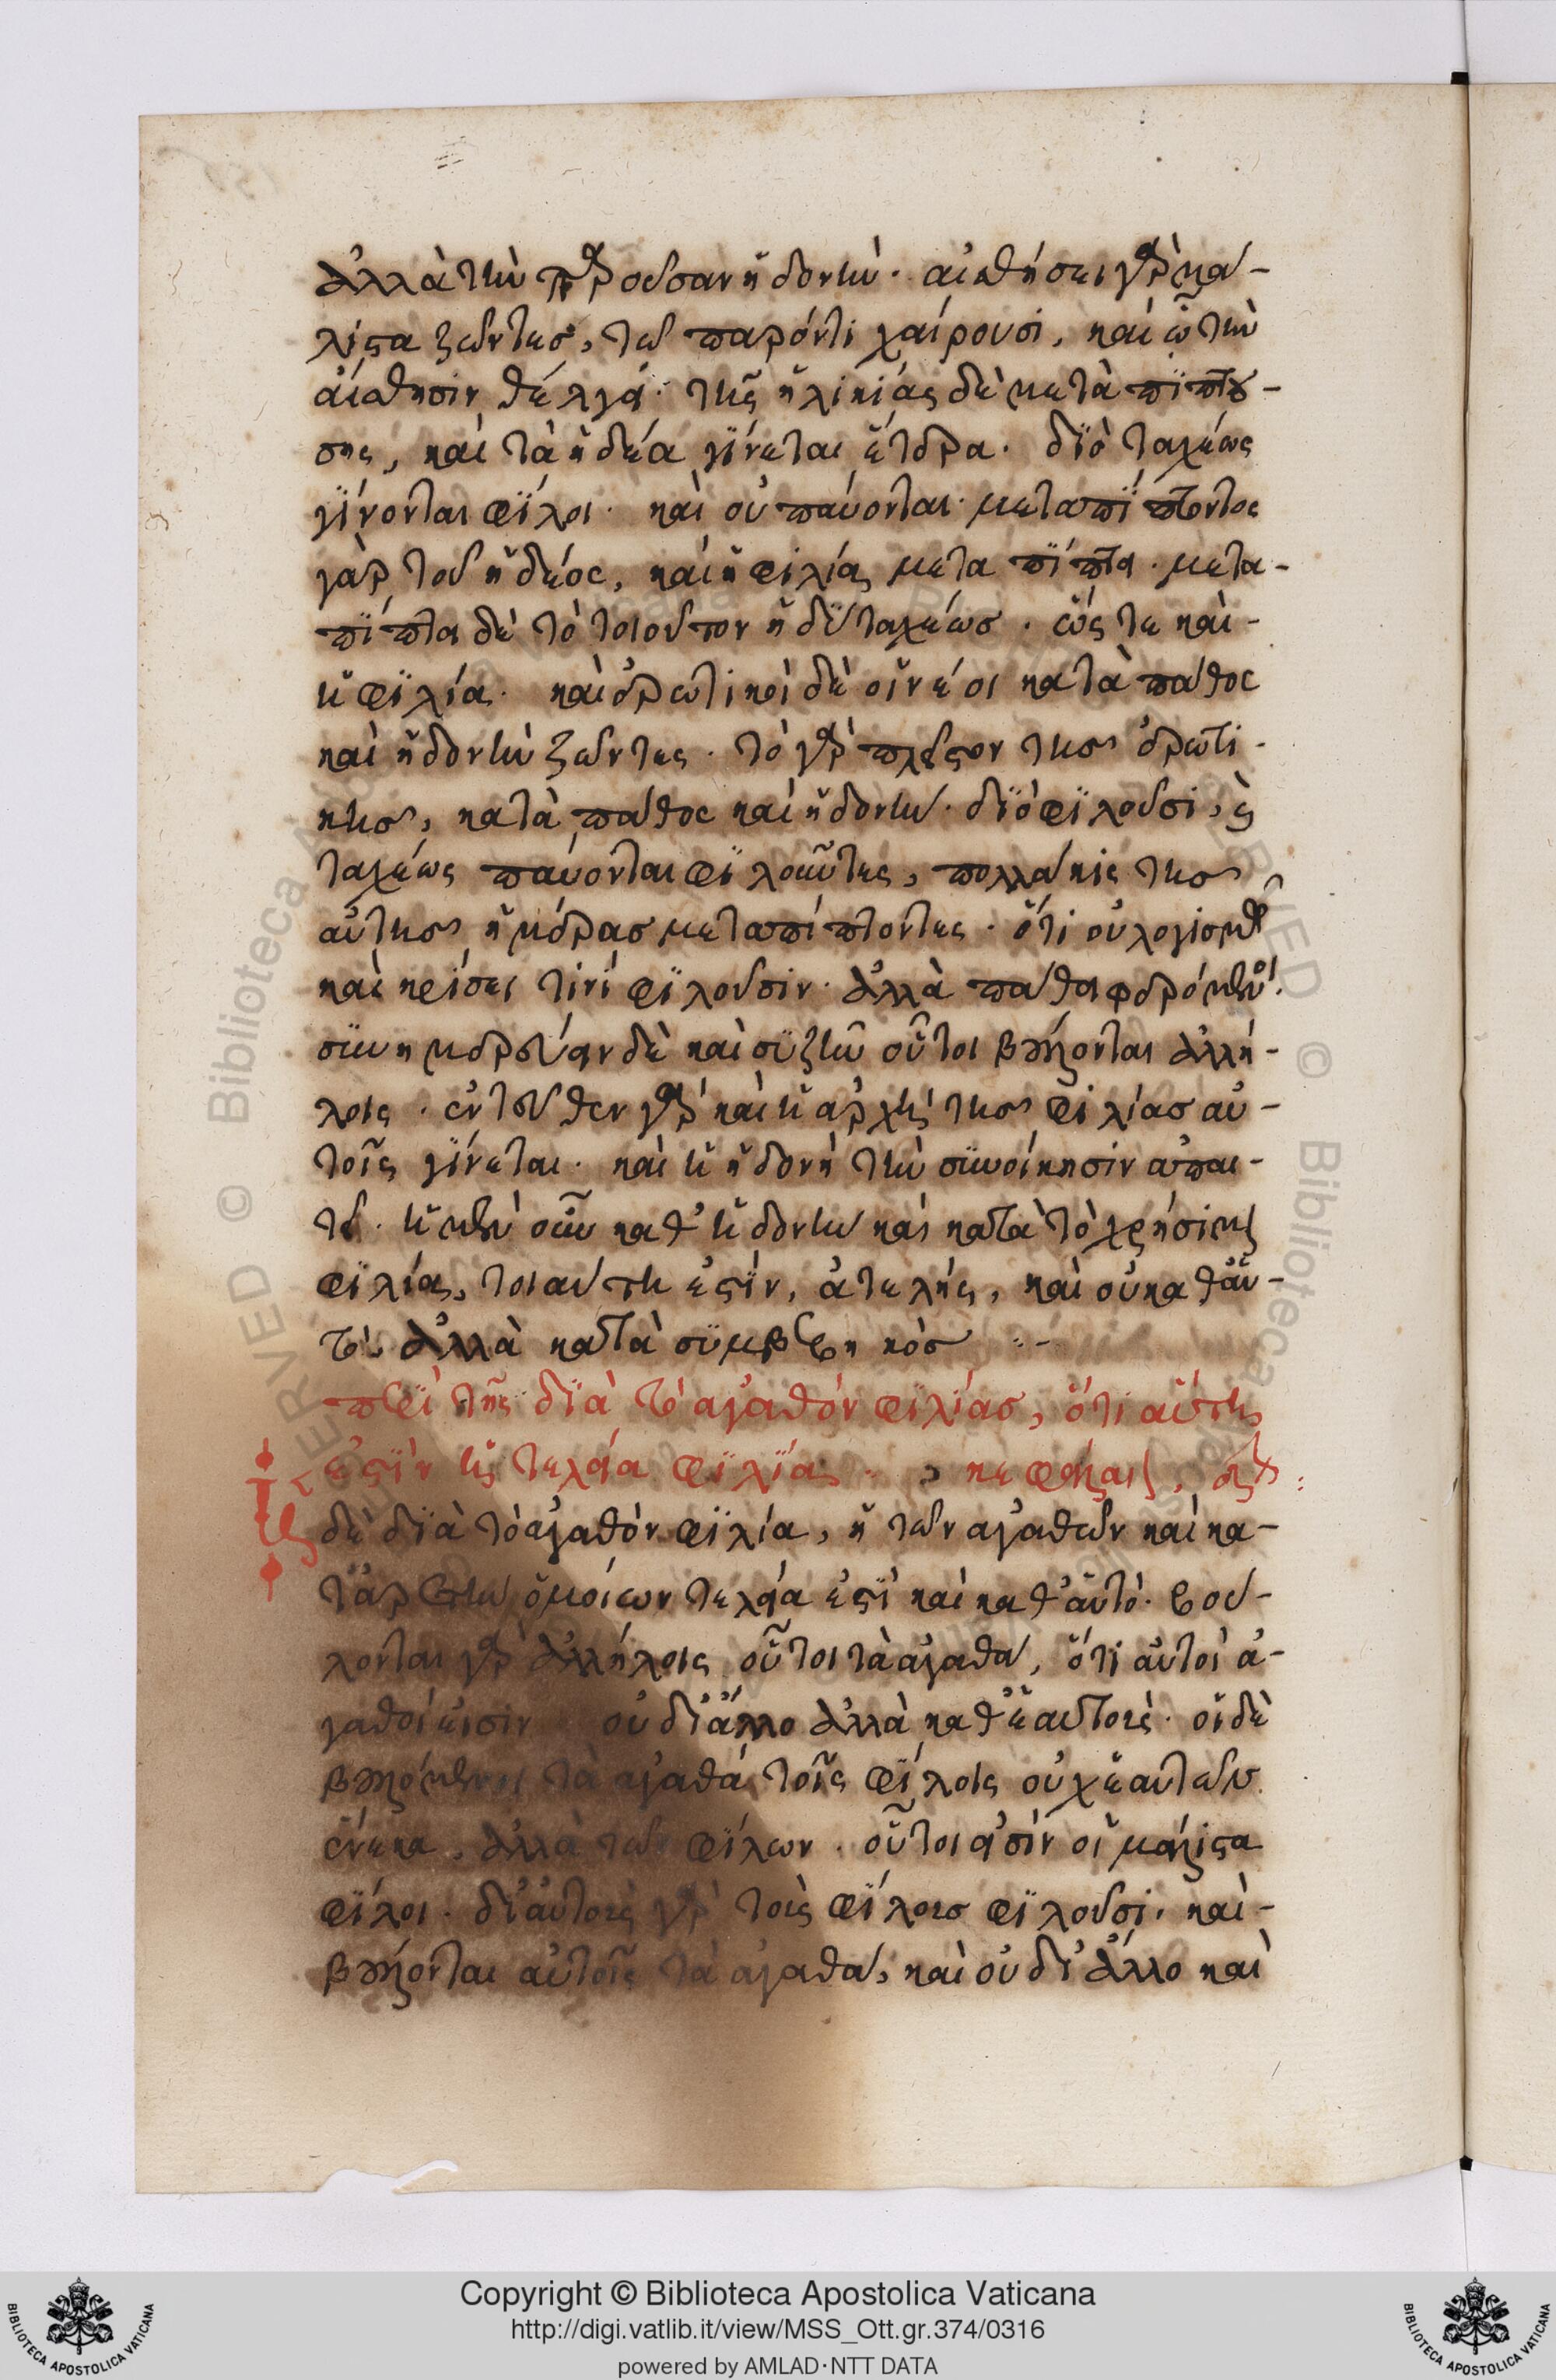 ἀλλὰ τὴν παροῦσαν ἡδονήν. αἰσθήσει γὰρ μά-
λιστα ζῶντες, τῷ παρόντι χαίρουσι, καὶ ὃ τὴν
αἴσθησιν θέλγει. τῆς ἡλικίας δὲ μεταπιπτού-
σης, καὶ τὰ ἡδέα γίνεται ἕτερα. διὸ ταχέως
γίνονται φίλοι. καὶ οὐ παύονται. μεταπίπτοντος
γὰρ τοῦ ἡδέος, καὶ ἡ φιλία μεταπίπτει. μετα-
πίπτει δὲ τὸ τοιοῦτον ἡδὺ ταχέως. ὥστε καὶ
ἡ φιλία. καὶ ἐρωτικοὶ δὲ οἱ νέοι κατὰ πάθος
καὶ ἡδονὴν ζῶντες. τὸ γὰρ πλεῖστον τῆς ἐρωτι-
κῆς, κατὰ πάθος καὶ ἡδονήν. διὸ φιλοῦσι, καὶ
ταχέως παύονται φιλοῦντες, πολλάκις τῆς
αὐτῆς ἡμέρας μεταπίπτοντες. ὅτι οὐ λογισμῷ
καὶ κρίσει τινὶ φιλοῦσιν. ἀλλὰ πάθει φερόμενοι.
συνημερεύειν δὲ καὶ συζῆν οὗτοι βούλονται ἀλλή-
λοις. ἐντεῦθεν γὰρ καὶ ἡ ἀρχὴ τῆς φιλίας αὐ-
τοῖς γίνεται. καὶ ἡ ἡδονὴ τὴν συνοίκησιν ἀπαι-
τεῖ. ἡ μὲν οὖν καθ' ἡδονὴν καὶ κατὰ τὸ χρήσιμον
φιλία, τοιαύτη ἐστίν, ἀτελής, καὶ οὐ καθ' αὑ-
τό. ἀλλὰ κατὰ συμβεβηκός :-
περὶ τῆς διὰ τὸ ἀγαθὸν φιλίας, ὅτι αὕτη
ἐστὶν ἡ τελεία φιλία. κεφάλαιον
δὲ διὰ τὸ ἀγαθὸν φιλία, ἡ τῶν ἀγαθῶν καὶ κα-
τ' ἀρετὴν ὁμοίων τελεία ἐστὶ καὶ καθ' αὑτό. βού-
λονται γὰρ ἀλλήλοις οὗτοι τὰ ἀγαθά, ὅτι αὐτοὶ ἀ-
γαθοί εἰσιν οὐ δι' ἄλλο ἀλλὰ καθ' ἑαυτούς. οἱ δὲ
βουλόμενοι τὰ ἀγαθὰ τοῖς φίλοις οὐχ ἑαυτῶν
ἕνεκα, ἀλλὰ τῶν φίλων. οὗτοι εἰσὶν οἱ μάλιστα
φίλοι. δι' αὐτοὺς γὰρ τοὺς φίλους φιλοῦσι. καὶ
βούλονται αὐτοῖς τὰ ἀγαθά, καὶ οὐ δι' ἄλλο καὶ
Copyright © Biblioteca Apostolica Vaticana
http://digi.vatlib.it/view/MSS_Ott.gr.374/0316
powered by AMLAD·NTT DATA